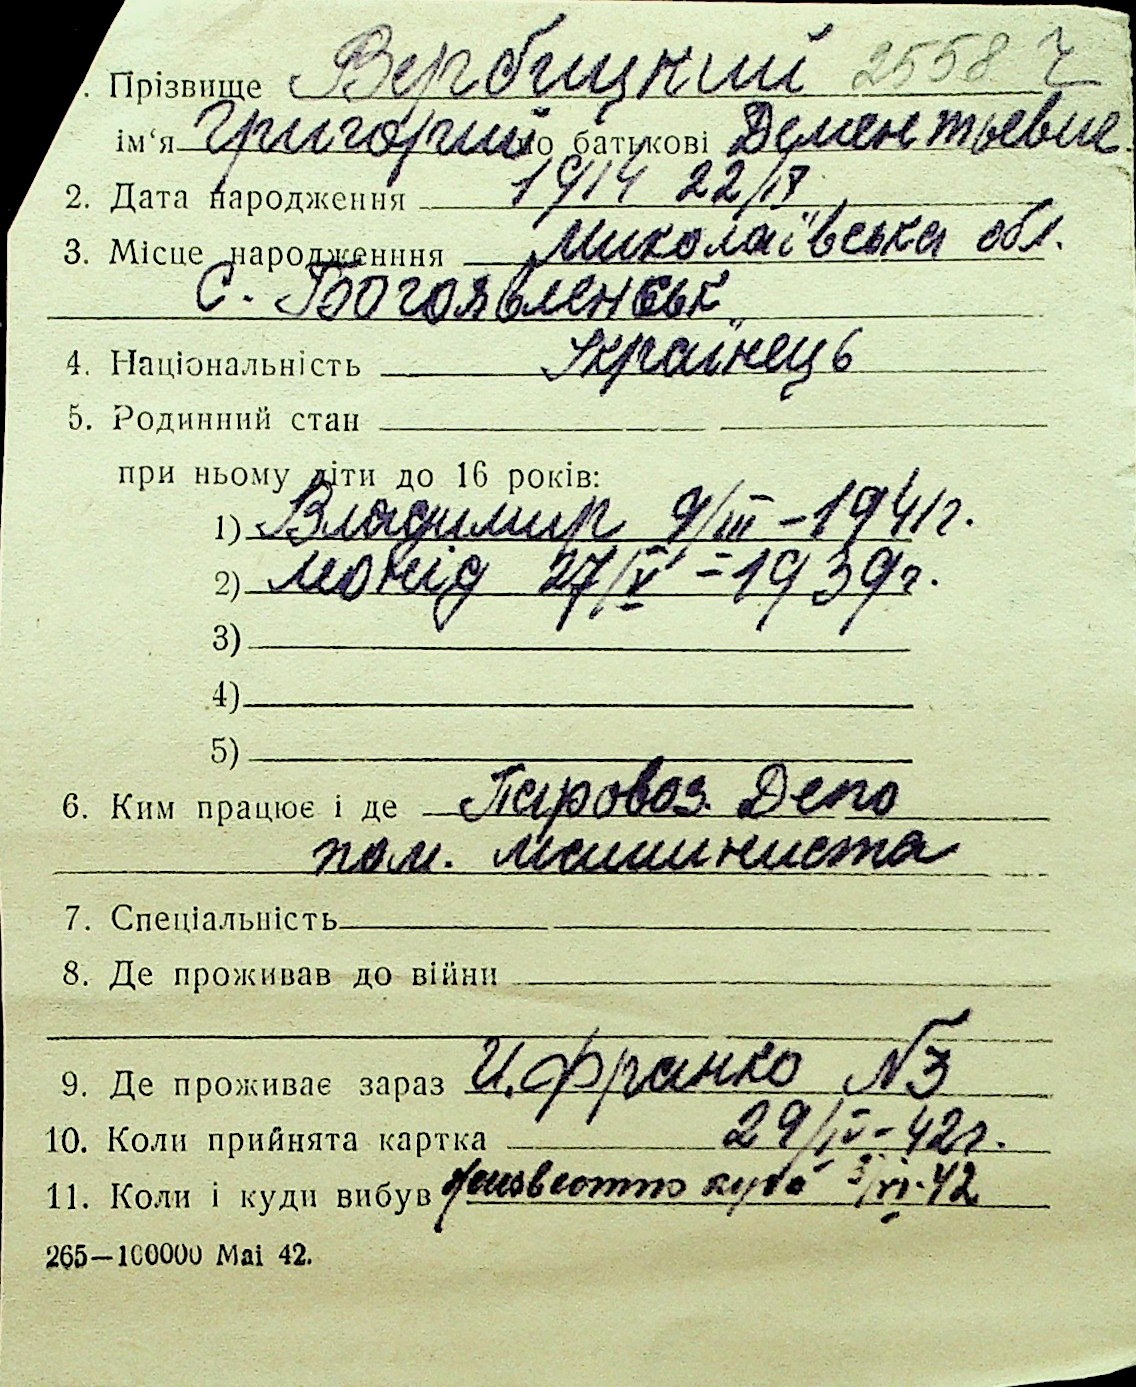 . Прізвище Вербицкий 2558
ім‘я Григорий по батькові Дементьевич
2. Дата народження 1914 22/IV
3. Місце народженння Миколаївська обл.
С. Богоявленськ
4. Національність Українець
5. Родинний стан
при ньому діти до 16 років:
1) Владимир 9/III – 1941г.
2) 27/IV – 1939г.
3)
4)
5)
6. Ким працює і де Паровоз. Депо
пом. машиниста
7. Спеціальність
8. Де проживав до війни
9. Де проживає зараз И. Франко № 3
10. Коли прийнята картка 29/IV – 42г.
11. Коли і куди вибув неизвестно куда 3/VI-42
265—100000 Маі 42.